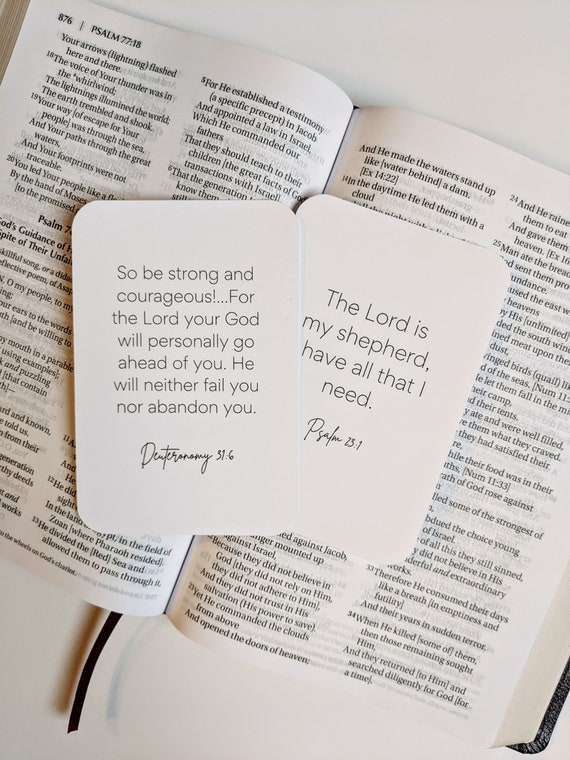 876 | PSALM 77:18
Your arrows (lightning) flashed
here and there.
18 The voice of Your thunder was in
the *whirlwind;
The lightnings illumined the world;
The earth trembled and shook.
19 Your way [of escape for Your
people] was through the sea,
And Your paths through the great
waters,
And Your footprints were not
traceable.
20 You led Your people like a
By the hand of Moses
[to the promised
Psalm
God's Guidance of H
spite of Their Unfai
skillful song, or a didac
eflective poem, of Asap
N, O my people, to my
ur ears to the words
th [and be willing to
my mouth in a parable
using examples];
rk and puzzling
[that contain
ard and known,
told us.
from their
generation
rthy deeds
sights
works
12 He did
in the land
Zoan [where Pharaoh resided].
13 He divided the [Red] Sea and
allowed them to pass through it,
5 For He established a testimony
(a specific precept) in Jacob
And appointed a law in Israel,
Which He commanded our
fathers
That they should teach to their
children [the great facts of
transactions with Israel],
That the generation
know them
So be strong and
courageous!...For
the Lord your God
will personally go
ahead of you. He
will neither fail you
nor abandon you.
Deuteronomy 31:6
The Lord is
my shepherd,
have all that I
need.
Psalm 23:1
mounted up
against Israel,
22 Because they did not believe in
God [they did not rely on Him,
they did not adhere to Him],
And they did not trust in His
salvation (His power to save).
23 Yet He commanded the clouds
from above
And opened the doors of heaven;
And He made the waters stand up
like [water behind] a dam.
[Ex 14:22]
14 In the daytime He led them with a
cloud
24 And He raine
them to eat
And gave them
heaven. [Ex 16
25 Man ate the bread
sent them prov
caused the east w
heavens
by His [unlimited]
ded the south wind
ined meat upon the
dust,
winged birds (quail) like
d of the seas. [Num 11:
He let them fall in the mi
their camp,
nd their tents.
ate and were well filled,
em what they craved.
they had satisfied their
while their food was in their
[Num 11:33]
rath of God rose against
killed some of the strongest of
bdued the choice young
Israel.
e of all this they still sinned,
did not believe in His
derful and extraordinary
33 Therefore He consumed their days
like a breath [in emptiness and
futility]
And their years in sudden terror.
34 When He killed [some of] them,
then those remaining sought
Him,
And they returned [to Him] and
searched diligently for God [for
a time].